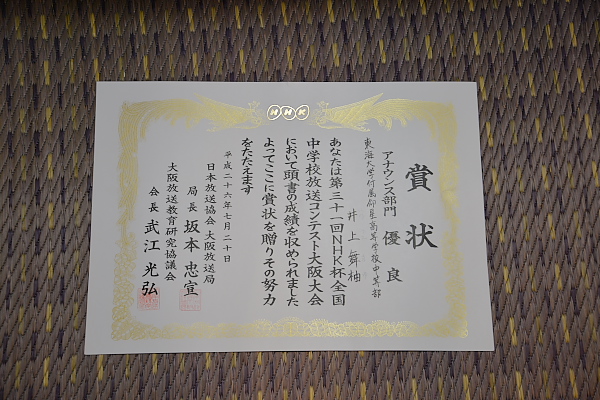 NHK
賞状
アナウンス部門 優良
東海大学付属仰星高等学校中等部
井上舞柚
あなたは第三十一回NHK杯全国
中学校放送コンテスト大阪大会
において頭書の成績を収められました
よってここに賞状を贈りその努力
をたたえます
平成二十六年七月二十日
日本放送協会大阪放送局
局長 坂本忠宣
大阪放送教育研究協議会
会長 武江光弘